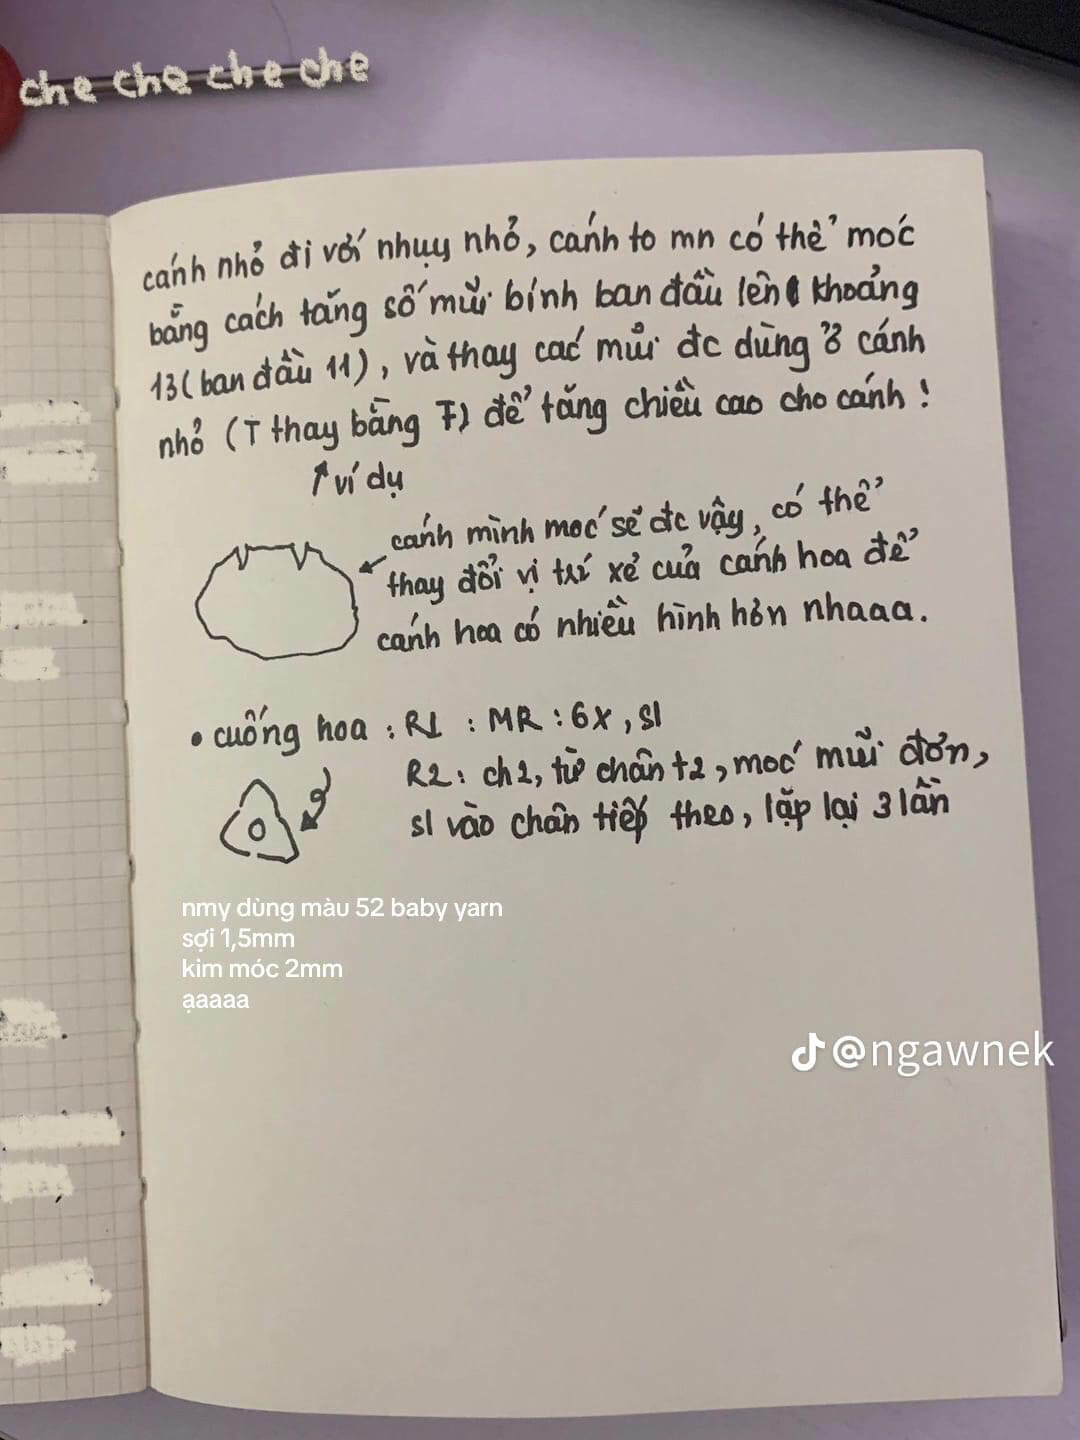 che che che che
cánh nhỏ đi với nhụy nhỏ, cánh to mn có thể móc
bằng cách tăng số mũi bính ban đầu lên khoảng
13 (ban đầu 11), và thay các mũi đc dùng ở cánh
nhỏ (T thay bằng F) để tăng chiều cao cho cánh!
↑ ví dụ
cánh mình móc sẽ đc vậy, có thể
thay đổi vị trí xẻ của cánh hoa để
cánh hoa có nhiều hình hơn nhaaa.
• cuống hoa : R1 : MR : 6X, sl
R2: ch2, từ chân t2, móc mũi đơn,
sl vào chân tiếp theo, lặp lại 3 lần
nmy dùng màu 52 baby yarn
sợi 1,5mm
kim móc 2mm
ạaaaa
@ngawnek